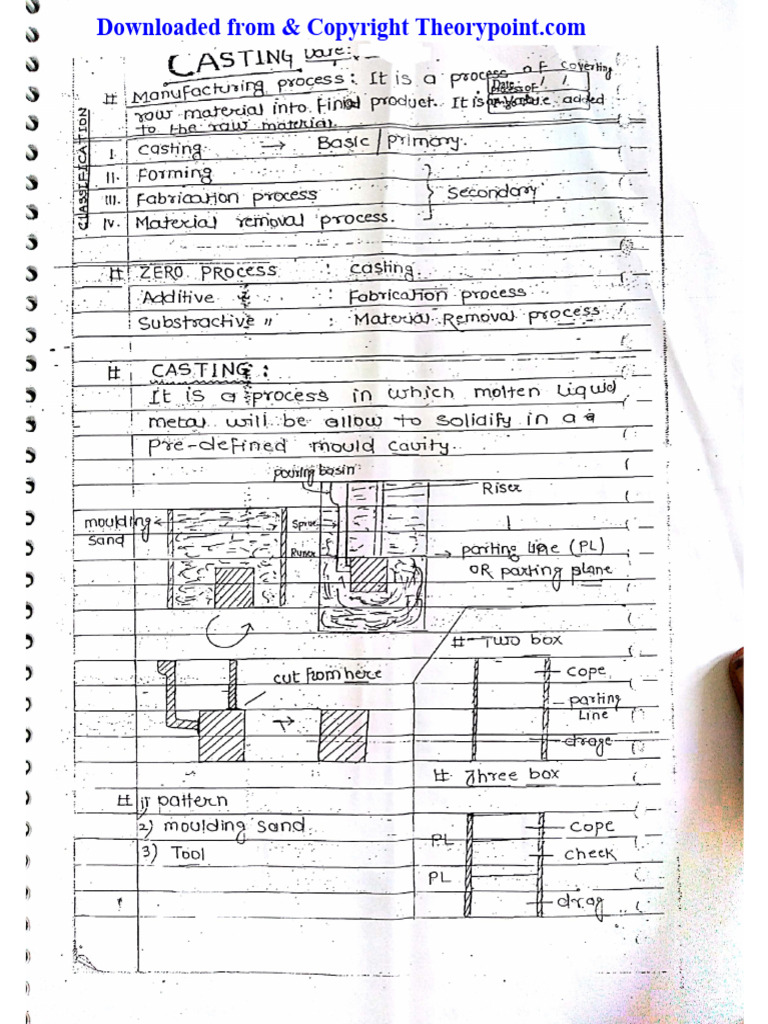 Downloaded from & Copyright Theorypoint.com
CASTING
# Manufacturing process: It is a process of coverting
raw material into final product. It is value added
to the raw material.
CLASSIFICATION
I. casting → Basic / primary.
II. Forming
III. Fabrication process } Secondary
IV. Material removal process.
# ZERO PROCESS : casting.
Additive : Fabrication process
Substractive " : Material Removal process
# CASTING:
It is a process in which molten liquid
metal will be allow to solidify in a
pre-defined mould cavity.
pouring basin
Riser
moulding
sand
Sprue
Runer
parting line (PL)
OR parting plane
# Two box
cut from here
cope
parting
Line
drage
# Three box
# 1) pattern
2) moulding sand
3) Tool
PL
PL
cope
check
drag